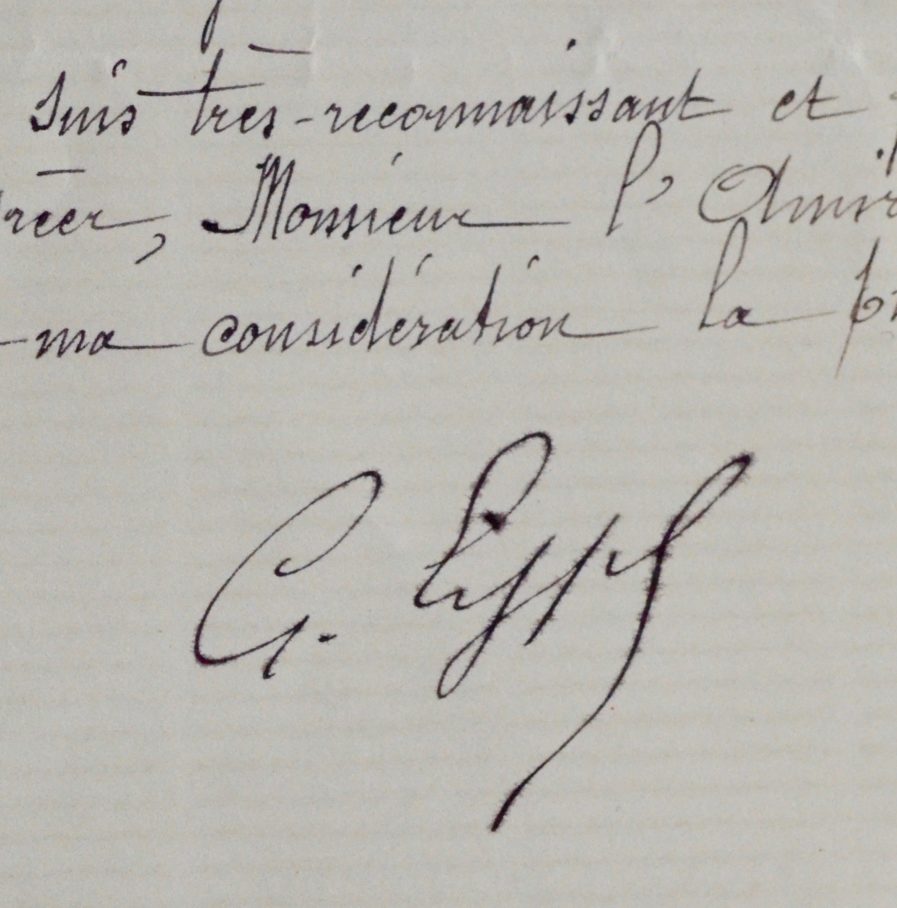 suis très-reconnaissant et
réer, Monsieur l'Amir
ma considération la
G.